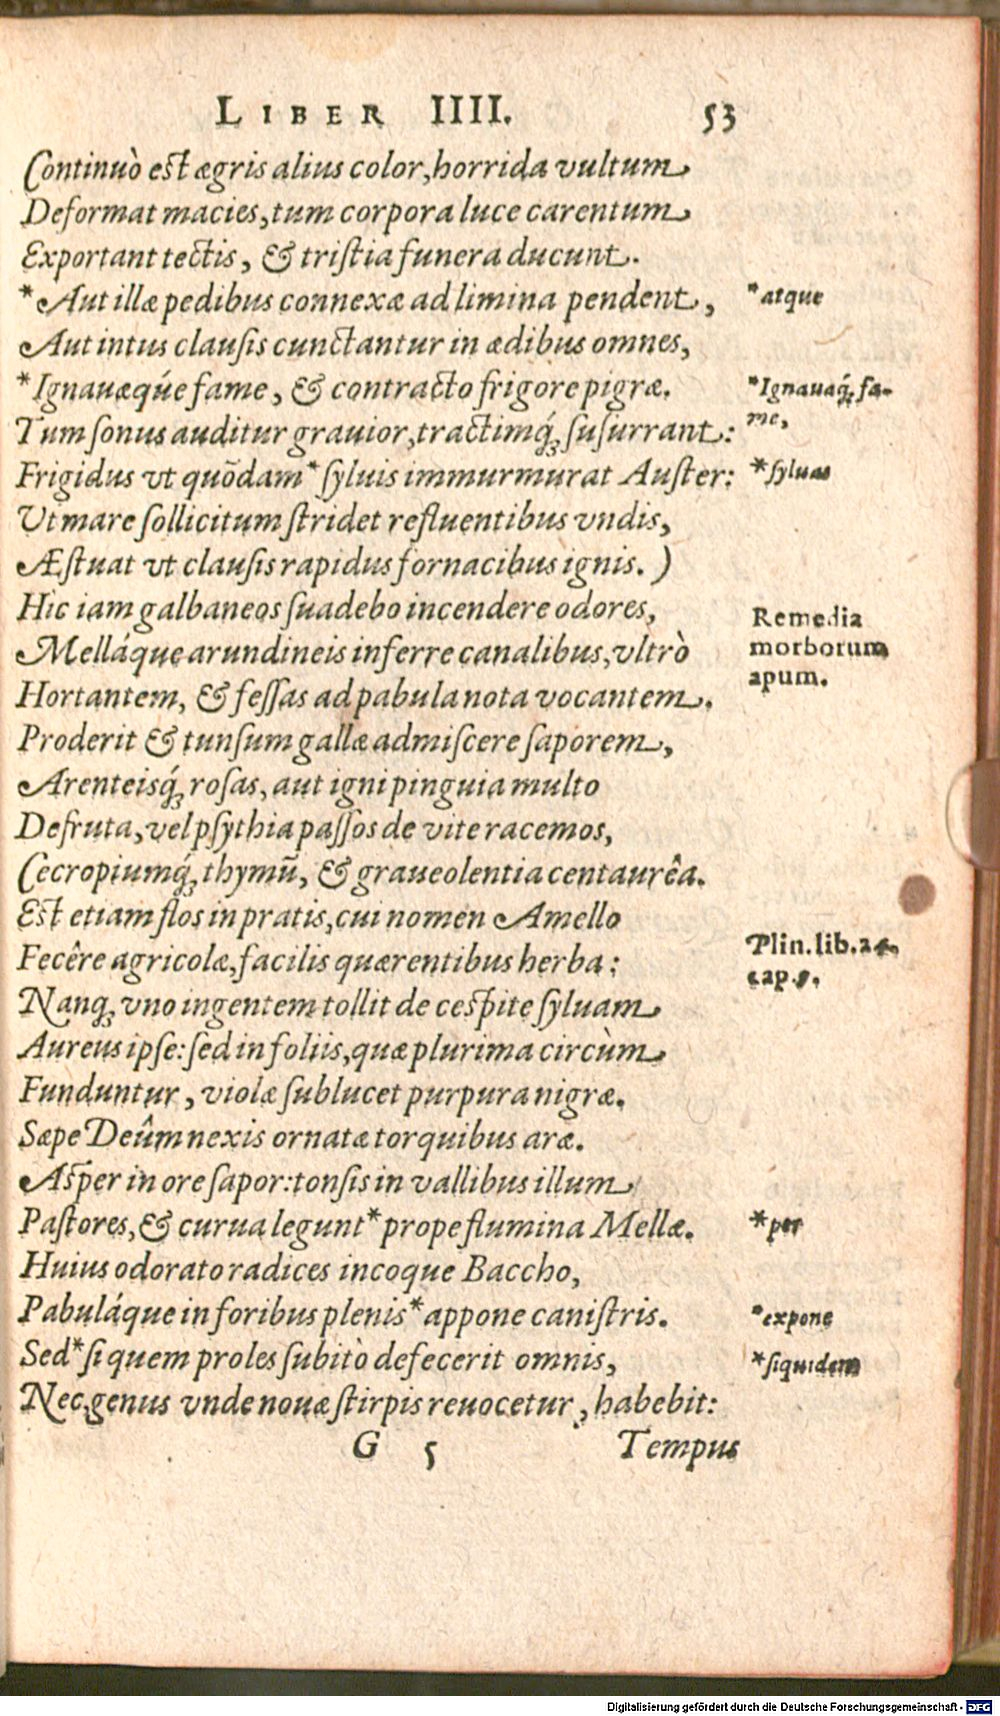 LIBER IIII. 53
Continuò est ægris alius color, horrida vultum
Deformat macies, tum corpora luce carentum
Exportant tectis, & tristia funera ducunt.
*Aut illæ pedibus connexæ ad limina pendent, *atque
Aut intus clausis cunctantur in ædibus omnes,
*Ignauæq́ue fame, & contracto frigore pigræ. *Ignauaq́; fa-
me,
Tum sonus auditur grauior, tractimq́; susurrant:
Frigidus vt quõdam *syluis immurmurat Auster: *syluas
Vt mare sollicitum stridet refluentibus vndis,
Æstuat vt clausis rapidus fornacibus ignis. )
Hic iam galbaneos suadebo incendere odores,
Remedia
morborum
apum.
Melláque arundineis inferre canalibus, vltrò
Hortantem, & fessas ad pabula nota vocantem.
Proderit & tunsum gallæ admiscere saporem,
Arenteisq́; rosas, aut igni pinguia multo
Defruta, vel psythia passos de vite racemos,
Cecropiumq́; thymũ, & graueolentia centaurêa.
Est etiam flos in pratis, cui nomen Amello
Plin. lib.
cap.
Fecêre agricolæ, facilis quærentibus herba:
Nanq; vno ingentem tollit de cespite syluam
Aureus ipse: sed in foliis, quæ plurima circùm
Funduntur, violæ sublucet purpura nigræ.
Sæpe Deûm nexis ornatæ torquibus aræ.
Asper in ore sapor: tonsis in vallibus illum
Pastores, & curua legunt *prope flumina Mellæ. *per
Huius odorato radices incoque Baccho,
Pabuláque in foribus plenis *appone canistris. *expone
Sed *si quem proles subitò defecerit omnis, *siquidem
Nec, genus vnde nouæ stirpis reuocetur, habebit:
G 5 Tempus
Digitalisierung gefördert durch die Deutsche Forschungsgemeinschaft - DFG